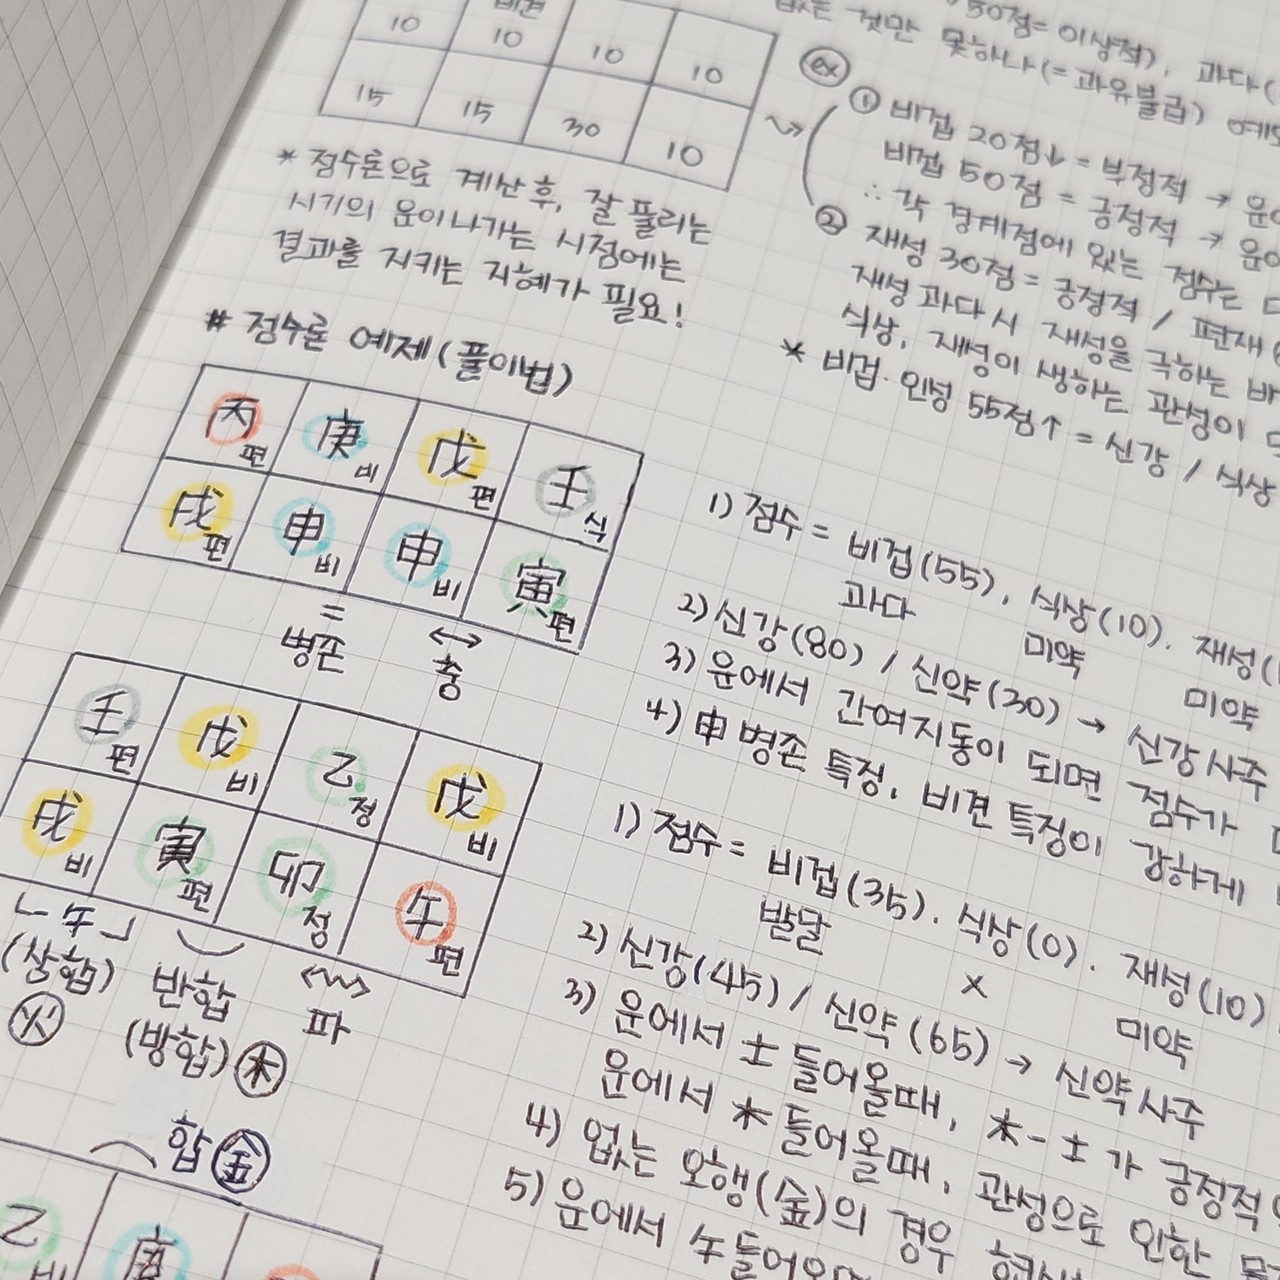 비견
10 10 10 10
15 15 30 10
* 점수론으로 계산 후, 잘 풀리는
시기의 운이 나가는 시점에는
결과를 지키는 지혜가 필요!
50점=이상적), 과다(
것만 못하나(=과유불급)
ex
① 비겁 20점↓ = 부정적 →
비겁 50점 = 긍정적 →
∴ 각 경계점에 있는 점수는
② 재성 30점 = 긍정적 / 편재
재성 과다시 재성을 극하는
식상, 재성이 생하는 관성이
* 비겁·인성 55점↑ = 신강 / 식상
# 점수론 예제(풀이법)
丙편 庚비 戊편 壬식
戌편 申비 申비 寅편
= ↔
병존 충
1) 점수 = 비겁(55), 식상(10). 재성(
과다 미약 미약
2) 신강(80) / 신약(30) → 신강사주
3) 운에서 간여지동이 되면 점수가
4) 申 병존 특징, 비견 특징이 강하게
壬편 戊비 乙정 戊비
戌비 寅편 卯정 午편
午
(삼합) 반합 파
火 (방합) 木
1) 점수 = 비겁(35). 식상(0). 재성(10)
발달 x 미약
2) 신강(45) / 신약(65) → 신약사주
3) 운에서 土 들어올때, 木-土가 긍정적
운에서 木 들어올때, 관성으로 인한
4) 없는 오행(金)의 경우
5) 운에서 午
합 金
乙비 庚